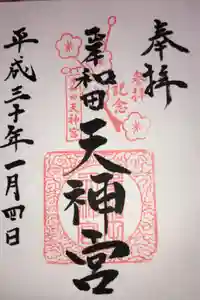 奉拝
参拝
記念
岸和田天神宮
平成三十年一月四日